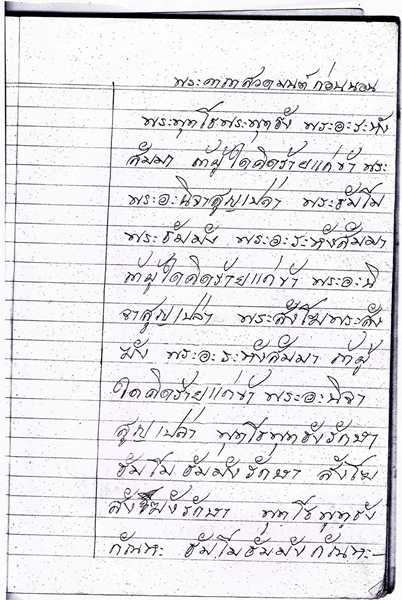 พระคาถาสวดมนต์ก่อนนอน
พระพุทโธพระพุทธัง พระอะระหัง
สัมมา ถ้าผู้ใดคิดร้ายแก่ข้า พระ
พระอะนิจาสูญเปล่า พระธัมโม
พระธัมมัง พระอะระหังสัมมา
ถ้าผู้ใดคิดร้ายแก่ข้า พระอะนิ
จาสูญเปล่า พระสังโฆพระสัง
ฆัง พระอะระหังสัมมา ถ้าผู้
ใดคิดร้ายแก่ข้า พระอะนิจา
สูญเปล่า พุทโธพุทธังรักษา
ธัมโมธัมมังรักษา สังโฆ
สังฆังรักษา พุทโธพุทธัง
กัณหะ ธัมโมธัมมังกัณหะ